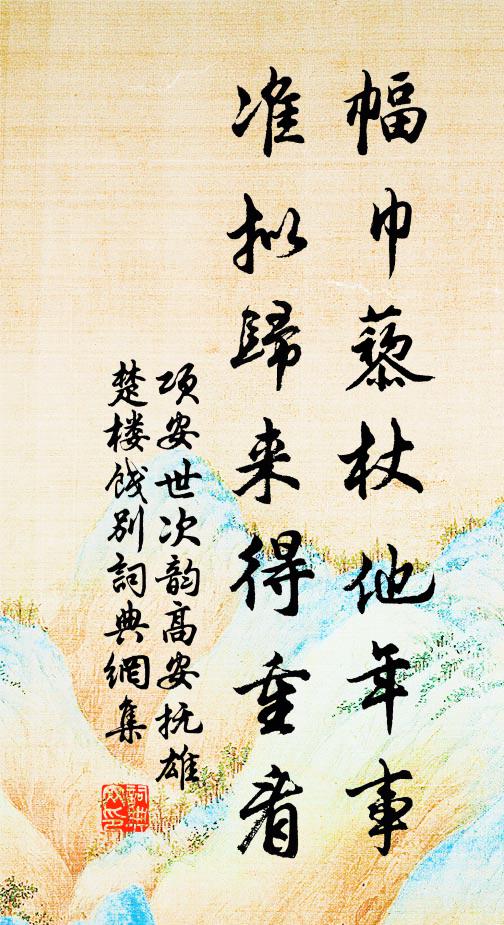 幅巾藜杖他年事
准拟歸来得重看
项安世次韵高安抚雄
楚楼饯别詞典網集